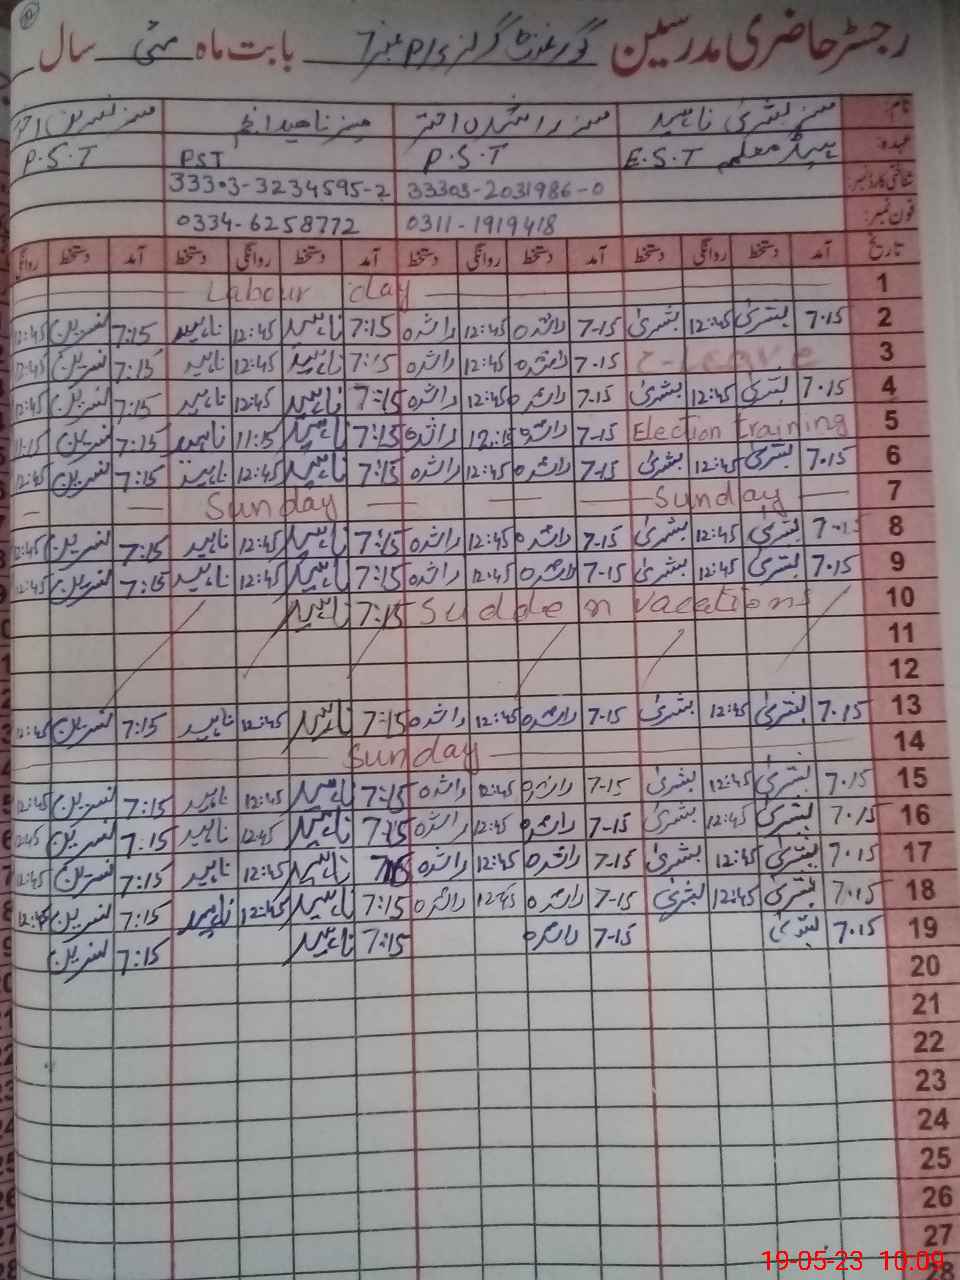 رجسٹر حاضری مدرسین گورنمنٹ گرلز P/S نمبر 7 بابت ماہ مئی سال
نام: مسز بشریٰ ناہید مسز راشدہ اختر مسز ناھید انجم مسز نسرین اختر
عہدہ: ہیڈ معلمہ E.S.T P.S.T PST P.S.T
شناختی کارڈ نمبر: 33303-2031986-0 33303-3234595-2
فون نمبر: 0311-1919418 0334-6258772
تاریخ آمد دستخط روانگی دستخط آمد دستخط روانگی دستخط آمد دستخط روانگی دستخط آمد دستخط
1 Labour day
2 7.15 بشریٰ 12:45 بشریٰ 7-15 راشدہ 12:45 راشدہ 7:15 ناہید 12:45 ناہید 7:15 نسرین 12:45
3 C-Leave 7-15 راشدہ 12:45 راشدہ 7:15 ناہید 12:45 ناہید 7:15 نسرین 12:45
4 7.15 بشریٰ 12:45 بشریٰ 7-15 راشدہ 12:45 راشدہ 7:15 ناہید 12:45 ناہید 7:15 نسرین 12:45
5 Election training 7-15 راشدہ راشدہ 7:15 ناہید 11:15 ناہید 7:15 نسرین 11:15
6 7.15 بشریٰ 12:45 بشریٰ 7-15 راشدہ 12:45 راشدہ 7:15 ناہید 12:45 ناہید 7:15 نسرین 12:45
7 Sunday Sunday
8 7.15 بشریٰ 12:45 بشریٰ 7-15 راشدہ 12:45 راشدہ 7:15 ناہید 12:45 ناہید 7:15 نسرین 12:45
9 7.15 بشریٰ 12:45 بشریٰ 7-15 راشدہ 12:45 راشدہ 7:15 ناہید 12:45 ناہید 7:15 نسرین 12:45
10 Sudden vacations 7:15 ناہید
11
12
13 7.15 بشریٰ 12:45 بشریٰ 7-15 راشدہ 12:45 راشدہ 7:15 ناہید 12:45 ناہید 7:15 نسرین 12:45
14 Sunday
15 7.15 بشریٰ 12:45 بشریٰ 7-15 راشدہ 12:45 راشدہ 7:15 ناہید 12:45 ناہید 7:15 نسرین 12:45
16 7.15 بشریٰ 12:45 بشریٰ 7-15 راشدہ 12:45 راشدہ 7:15 ناہید 12:45 ناہید 7:15 نسرین 12:45
17 7.15 بشریٰ 12:45 بشریٰ 7-15 راشدہ 12:45 راشدہ ناہید 12:45 ناہید 7:15 نسرین 12:45
18 7.15 بشریٰ 12:45 بشریٰ 7-15 راشدہ 12:45 راشدہ 7:15 ناہید 12:45 ناہید 7:15 نسرین 12:45
19 7.15 بشریٰ 7-15 راشدہ 7:15 ناہید 7:15 نسرین
20
21
22
23
24
25
26
27
28
19-05-23 10.09